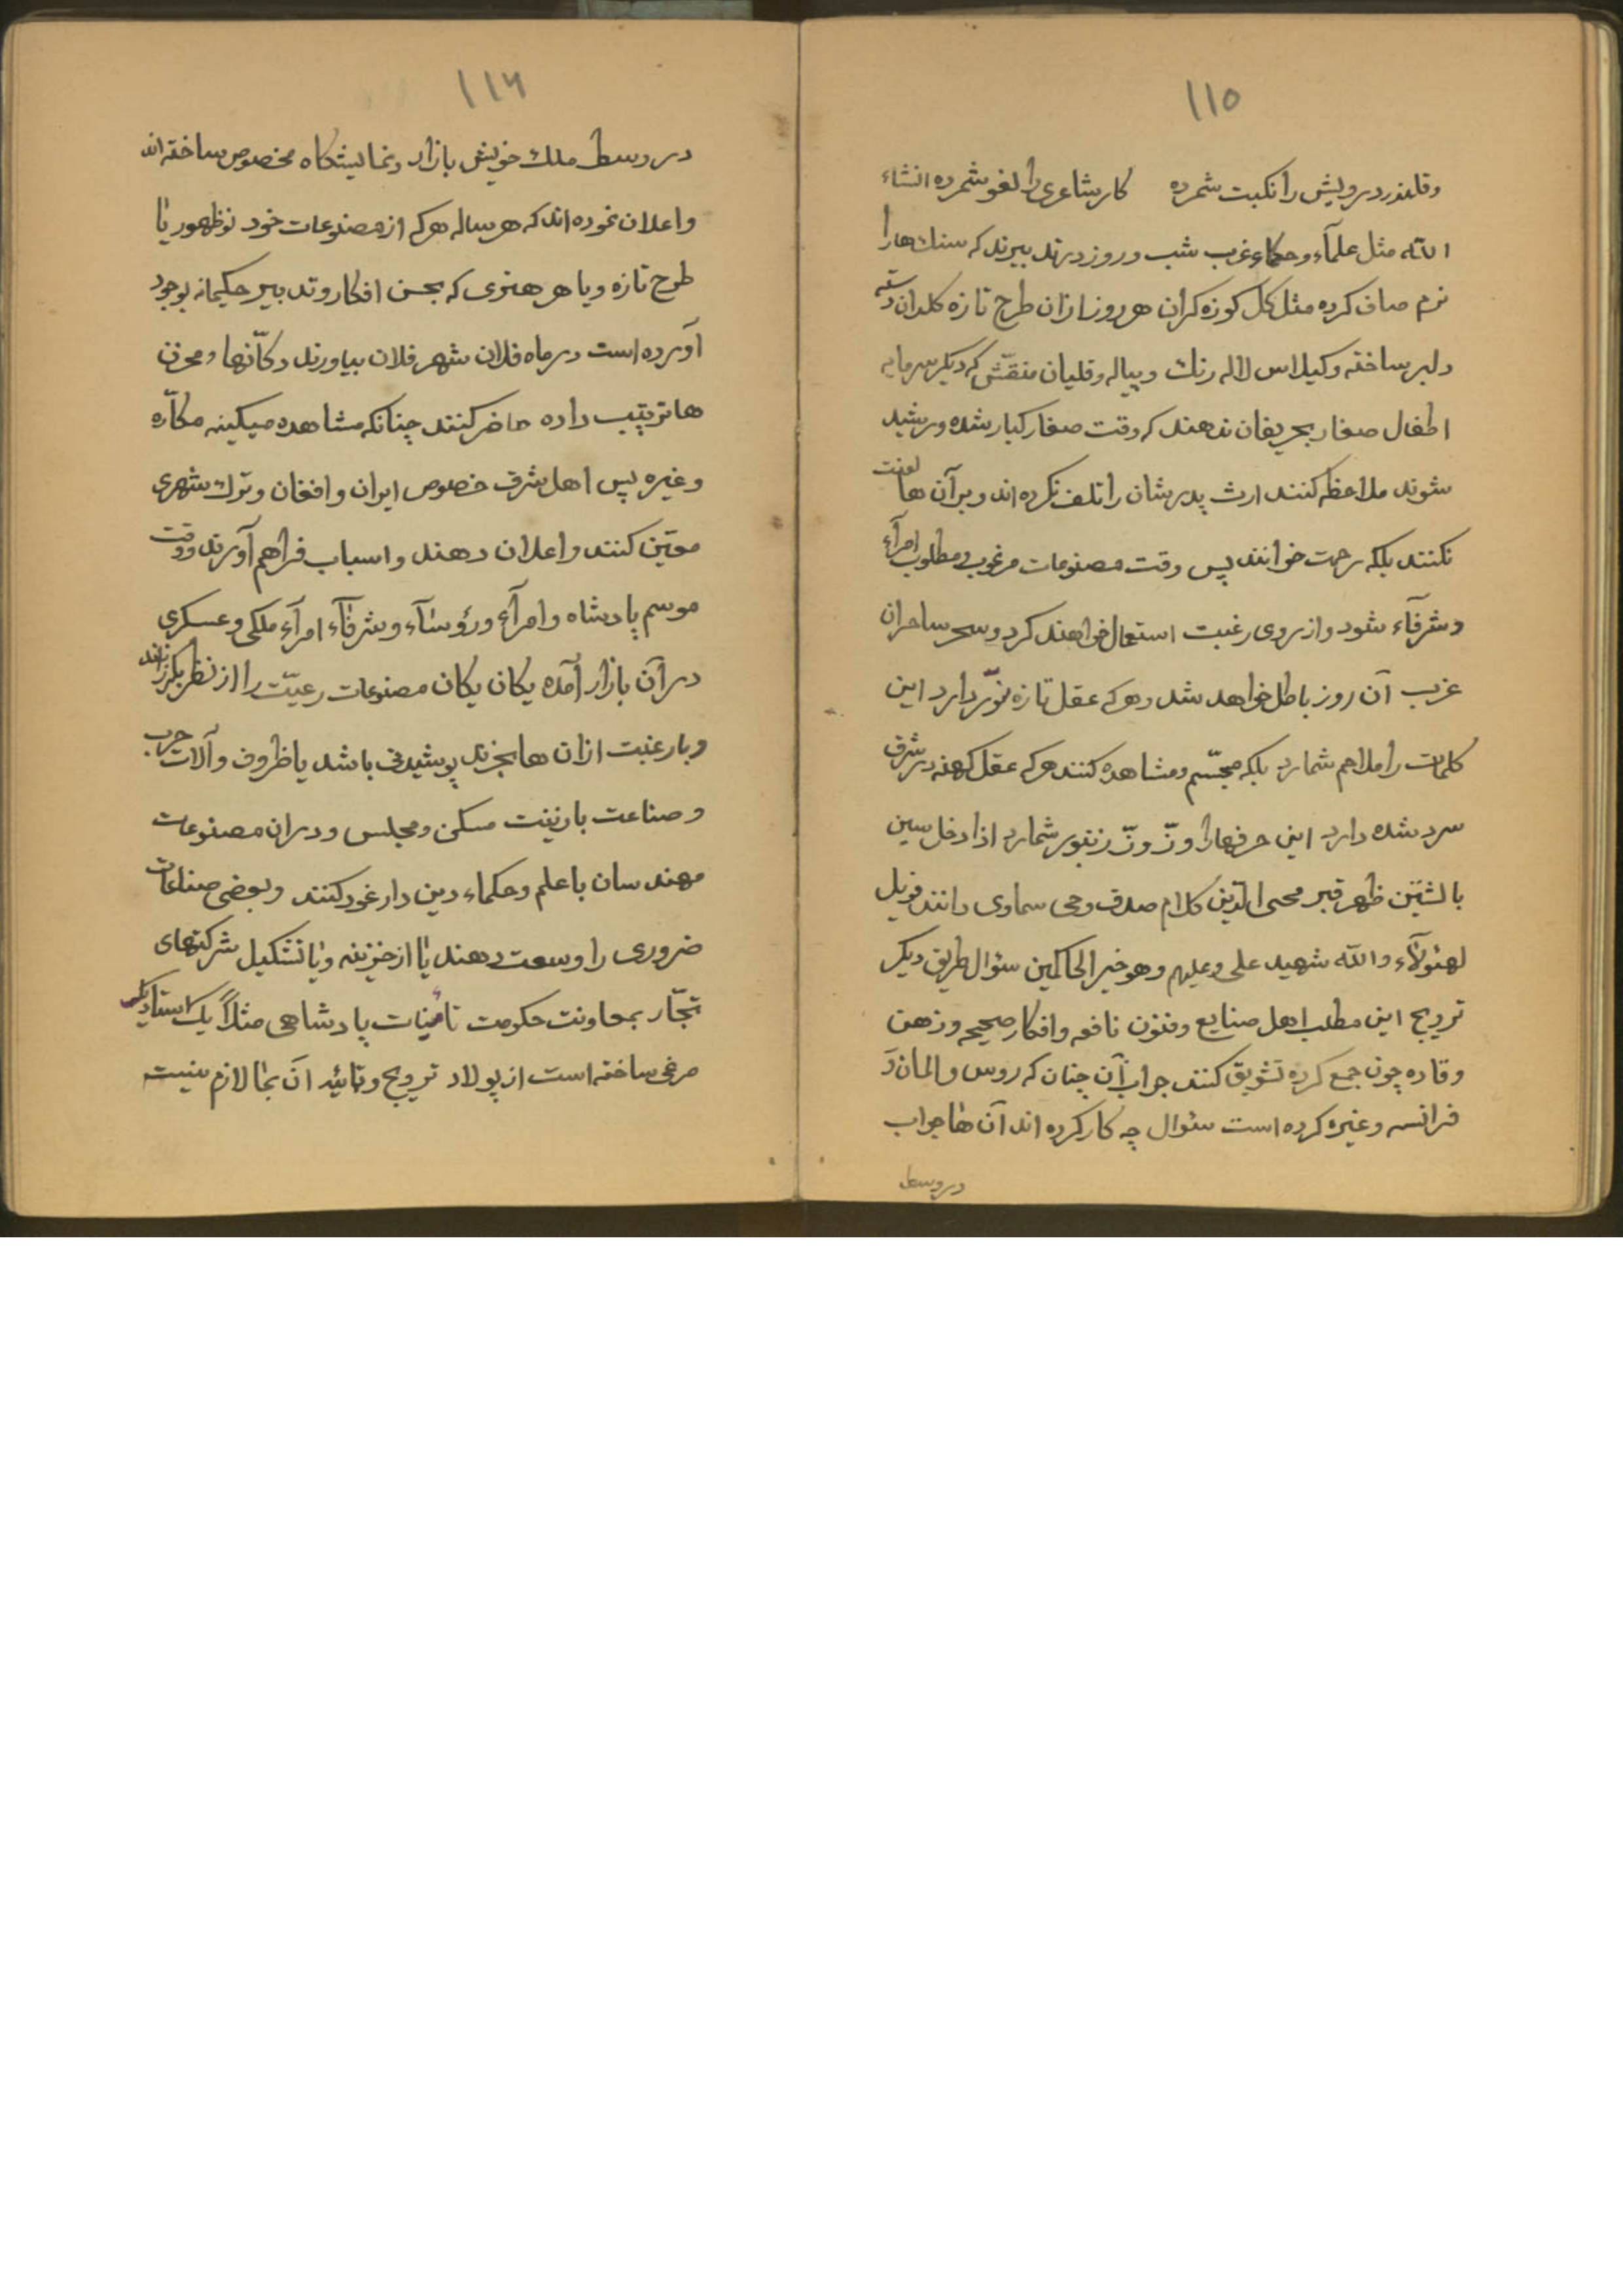 ۱۱۵
وقلندر درویش را نکبت شمرده کار شاعری را لغو شمرده انشاء
الله مثل علمآء وحکماء غرب شب و روز در تدبیرند که سنك هارا
نرم صاف کرده مثل کل کوزه کران هر روز ازان طرح تازه کلدان دسته
دلبر ساخته وکیلاس لاله رنك و پیاله وقلیان منقّش که دیکر سرمایه
اطفال صغار بحریفان ندهند که وقت صغار کبار شده ورشید
شوند ملاحظه کنند ارث پدرشان را تلف نکرده اند و برآن ها لعنت
نکنند بلکه رحمت خوانند پس وقت مصنوعات مرغوب ومطلوب امرآء
وشرفآء شود واز روی رغبت استعمال خواهند کرد وسحر ساحران
غرب آن روز باطل خواهد شد وهر که عقل تازه نوّر دارد این
کلمات را ملاهم شمارد بلکه مجسّم ومشاهده کنند هر که عقل کهنه در شرق
سرد شده دارد این حرفهارا وزّ وزّ زنبور شمارد اذا دخل سین
بالشّین ظهر قبر محی الدّین کلام صدق وحی سماوی دانند فویل
لهئولآء والله شهید علی وعلیهم وهو خیر الحاکمین سئوال طریق دیکر
ترویج این مطلب اهل صنایع وفنون نافعه وافکار صحیحه وذهن
وقاده چون جمع کرده تشویق کنند جواب آن چنان که روس والمان و
فرانسه وغیره کرده است سئوال چه کار کرده اند آن ها جواب
در وسط
۱۱۶
در وسط ملك خویش بازار ونمایشکاه مخصوص ساخته اند
واعلان نموده اند که هر ساله هر که از مصنوعات خود نوظهور یا
طرح تازه ویا هر هنری که بحسن افکار وتدبیر حکیمانه بوجود
آورده است در ماه فلان شهر فلان بیاورند دکّانها ومخزن
ها ترتیب داده حاضر کنند چنانکه مشاهده میکینه مکآره
وغیره پس اهل شرق خصوص ایران وافغان وترك شهری
معیّن کنند واعلان دهند واسباب فراهم آورند ووقت
موسم پادشاه وامرآء ورؤسآء وشرفآء امرآء ملکی وعسکری
در آن بازار آمده یکان یکان مصنوعات رعیّت را از نظر بکذرانند
وبا رغبت ازان ها بخرند پوشیدنی باشد یا ظروف وآلات حرب
وصناعت با زینت مسکن ومجلس ودران مصنوعات
مهندسان با علم وحکماء دین دار غور کنند وبعضی صناعات
ضروری را وسعت دهند یا از خزینه ویا تشکیل شرکتهای
تجّار بمعاونت حکومت تأمینات پادشاهی مثلاً یك استاد یك
مرغی ساخته است از پولاد ترویج وتائید آن بما لازم نیست